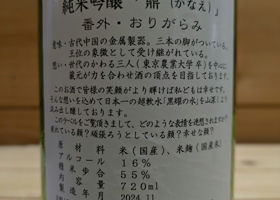 純米吟醸「鼎(かなえ)」
番外・おりがらみ
意味・古代中国の金属製器。三本の脚がついている。
王位の象徴として受け継がれている。
想い・世代のかわる三人(東京農業大学卒)を中心に
蔵元が力を合わせ酒の頂点を目指しております。
このお酒で皆様の笑顔がより輝けば私どもは幸せです。
そんな想いを込めて日本一の超軟水「黒耀の水」を
仕込み出し醸しております。
このラベルをご覧頂きまして、どのような表情を連想されますか
疲れている顔?頑張ろうとしている顔?幸せな顔?
原材料 米(国産)、米麹(国産米)
アルコール 16%
精米歩合 55%
内容量 720ml
製造年月 2024.11